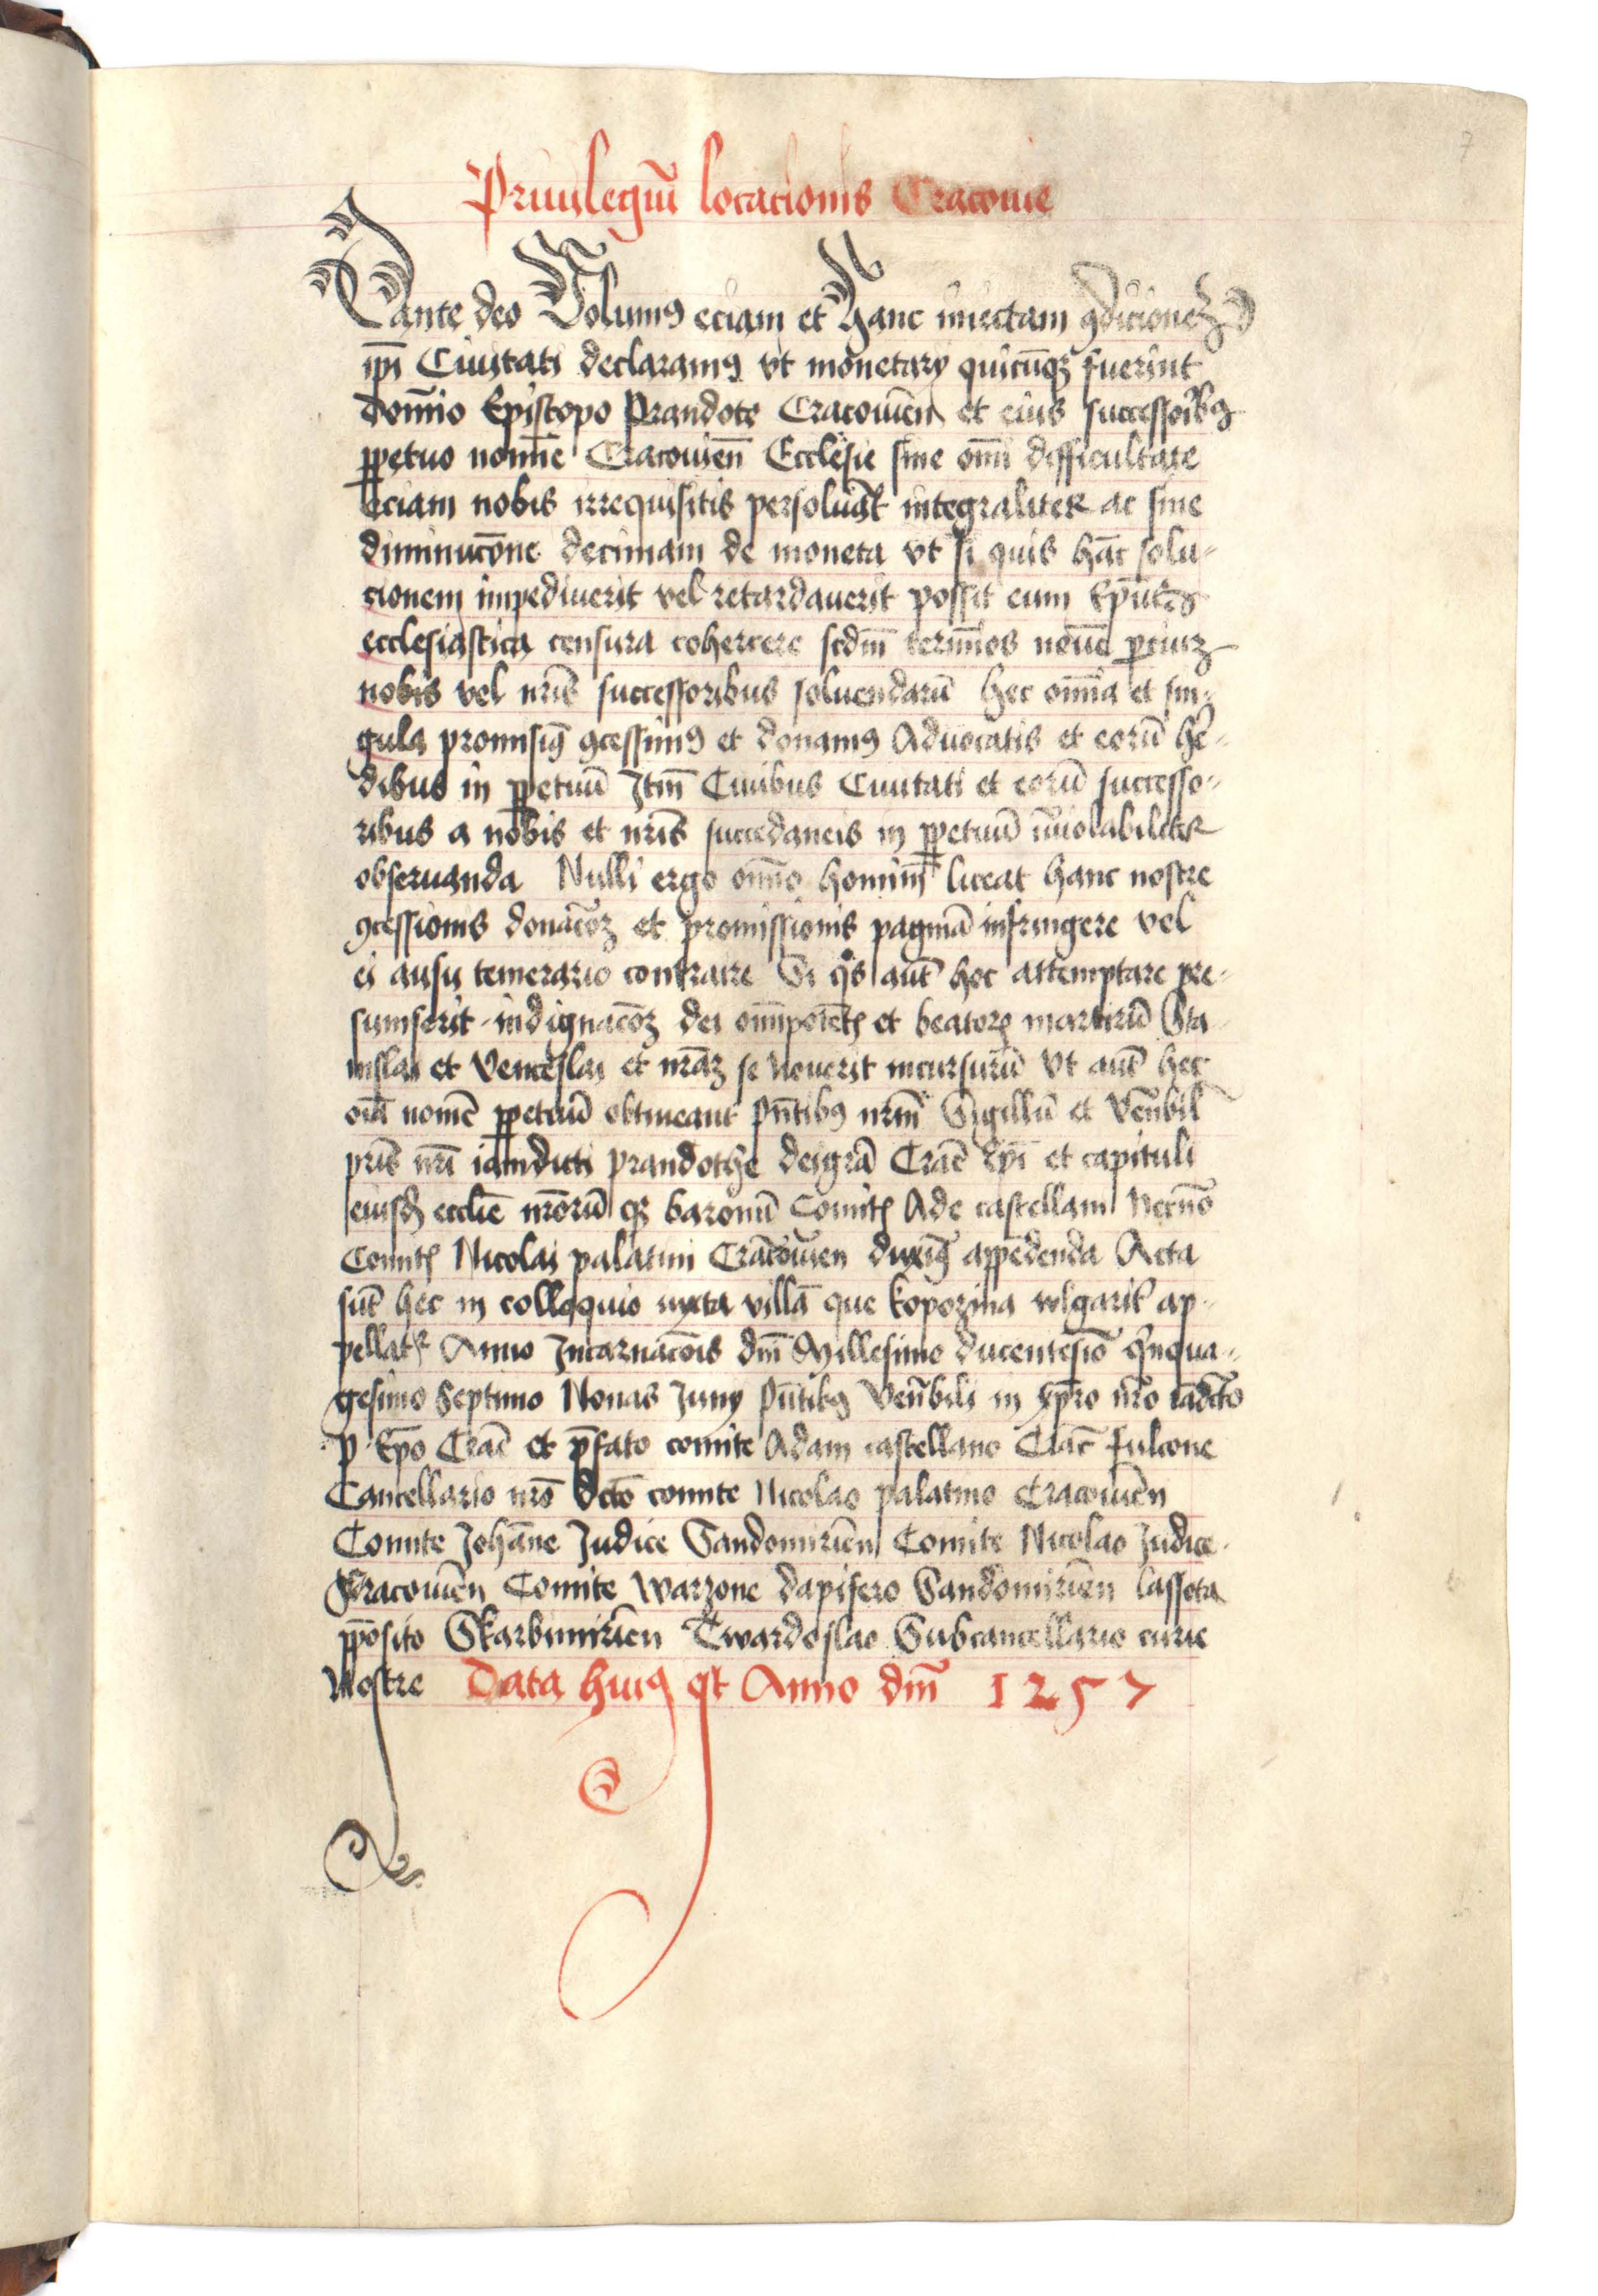 7
Priuilegiū locacionis Cracouie
Dante deo Volumꝰ eciam et hanc iniectam ꝯdicionē
ipi̅ Ciuitati declaramꝰ vt monetarÿ quicūqꝫ fuerint
domīo Episcopo Prandote Cracouien̄ et eius successoribꝰ
ꝑpetuo nomīe Cracouien̄ Ecclesie sine om̄i difficultate
eciam nobis irrequisitis persoluāt integraliter ac sine
diminucōne decimam de moneta vt si quis hāc solu-
cionem impediuerit vel retardauerit possit eum
ecclesiastica censura cohercere scdm̄ termīos
nobis vel nris̄ successoribus soluendarū hec om̄ia et sin-
gula promisimꝰ ꝯcessimꝰ et donamꝰ Aduocatis et eorū he-
dibus in ꝑpetuū Itm̄ Ciuibus Ciuitati et eorū successo-
ribus a nobis et nris̄ succedaneis in ꝑpetuū īuiolabiliter
obseruanda Nulli ergo om̄io hominū liceat hanc nostre
ꝯcessionis donacōꝫ et promissionis paginā infringere vel
ei ausu temerario contraire Si qⁱs aut̄ hoc attemptare pre-
sumserit indignacōꝫ dei om̄ipotētꝭ et beatorꝝ martirū Sta
nislai et Venceslai et nrāꝫ se nouerit incursurū Vt aut̄ hec
oīa nomē ꝑpetuū obtineant pn̄tibꝰ nrm̄ Sigillū et Ven̄bil
pris̄ nri̅ iamdicti prandothe deigrā Crac̄ Epi̅ et capituli
eiusdꝫ ecclie̅ nrōrūqꝫ baronū Comitꝭ Ade castellani necnō
Comitꝭ Nicolai palatini Cracouien̄ duximꝰ appēdenda Acta
sūt hec in colloquio iuxta villā que kopozina wlgarit̄ ap-
pellatꝛ Anno Incarnacōis dn̄i Millesimo ducentesīo qⁱnqua-
gesimo Septimo Nonas Junÿ pn̄tibꝰ Ven̄bili in xp̄ro nr̄o iādcto
p Ep̄o Crac̄ et p̄fato comite Adam castellano Crac̄ fulcone
Cancellario nrō dcto̅ comite Nicolao palatino Cracouien̄
Comite Johāne Judice Sandomirien̄ Comite Nicolao Judice
Cracouien̄ Comite Warzone dapifero Sandomirien̄ lassota
ꝑposito Skarbimirien̄ Twardoslao Subcancellario curie
Nostre Data huiꝰ est Anno dn̄i 1257